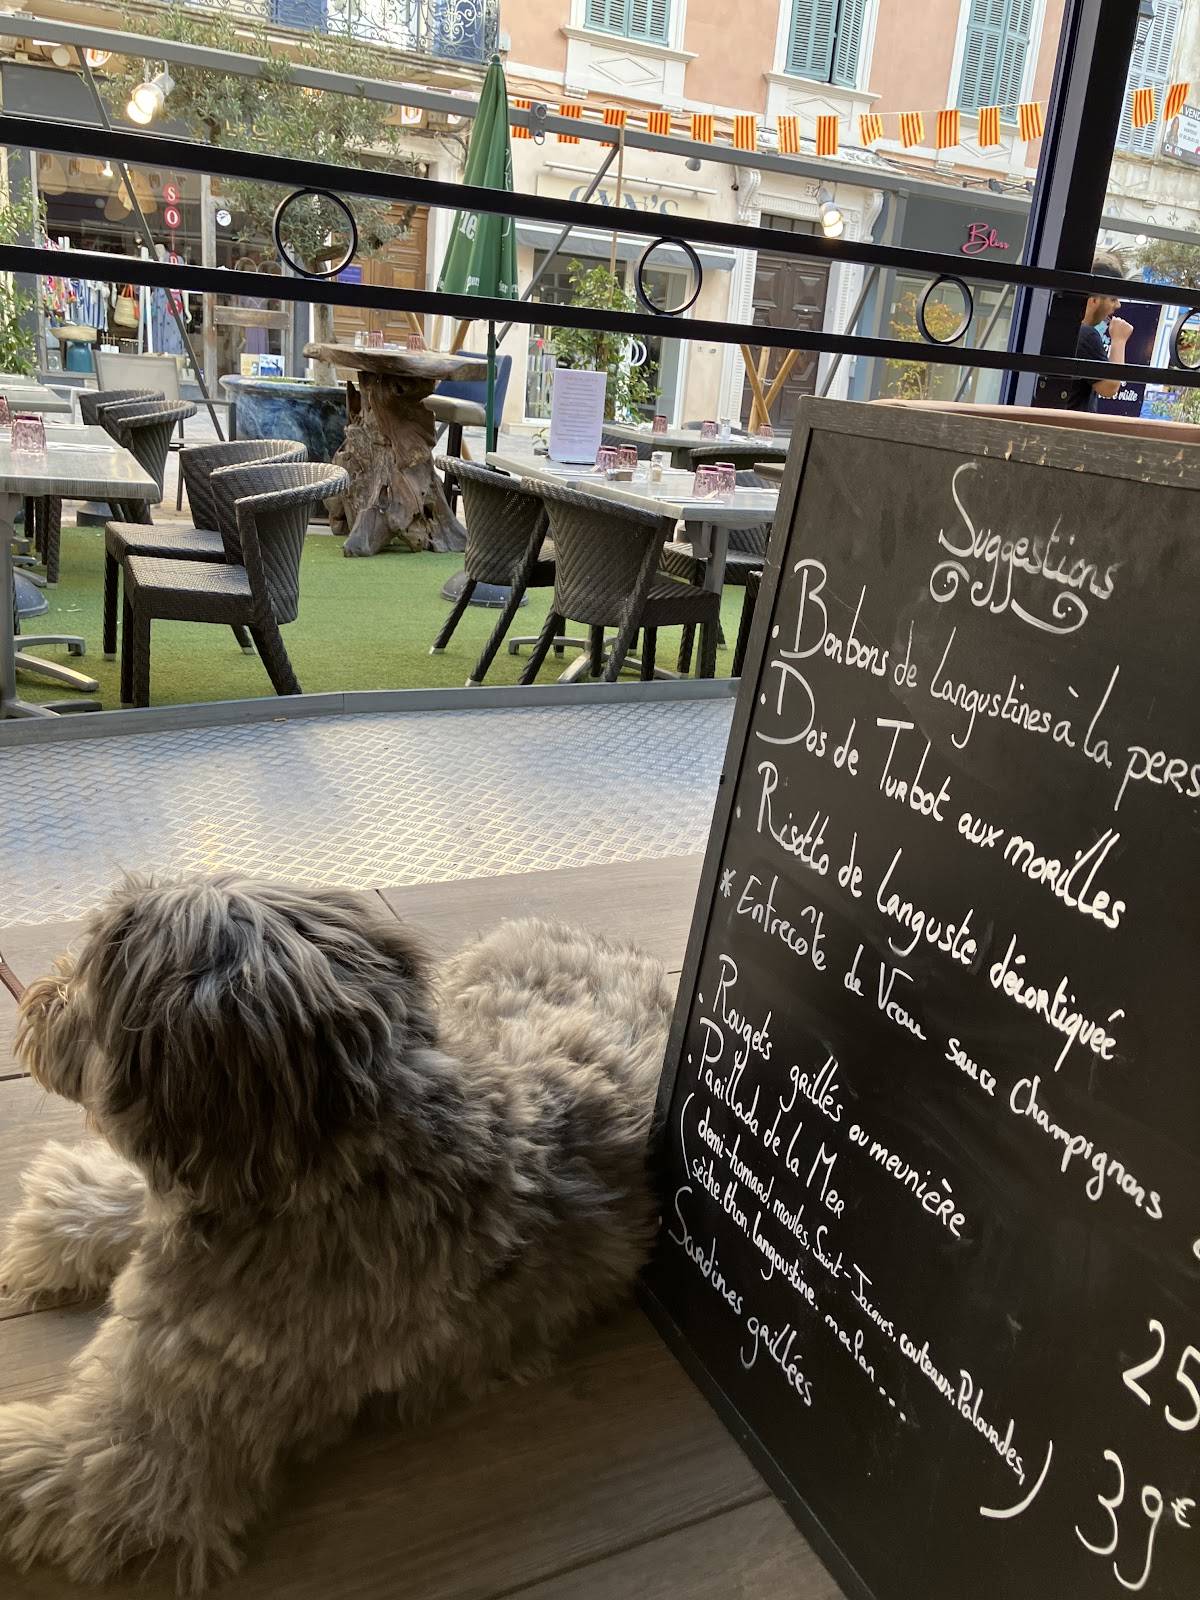 SO
GYN'S
Bliss
Suggestions
. Bonbons de Langustines à la pers
. Dos de Turbot aux morilles
. Risotto de languste décortiquée
* Entrecôte de Veau sauce Champignons
. Rougets grillés ou meunière
. Parillada de la Mer
(demi-homard, moules, Saint-Jacques, couteaux, Palourdes,
sèche, thon, langoustine, merlan...)
. Sardines grillées
25
39€